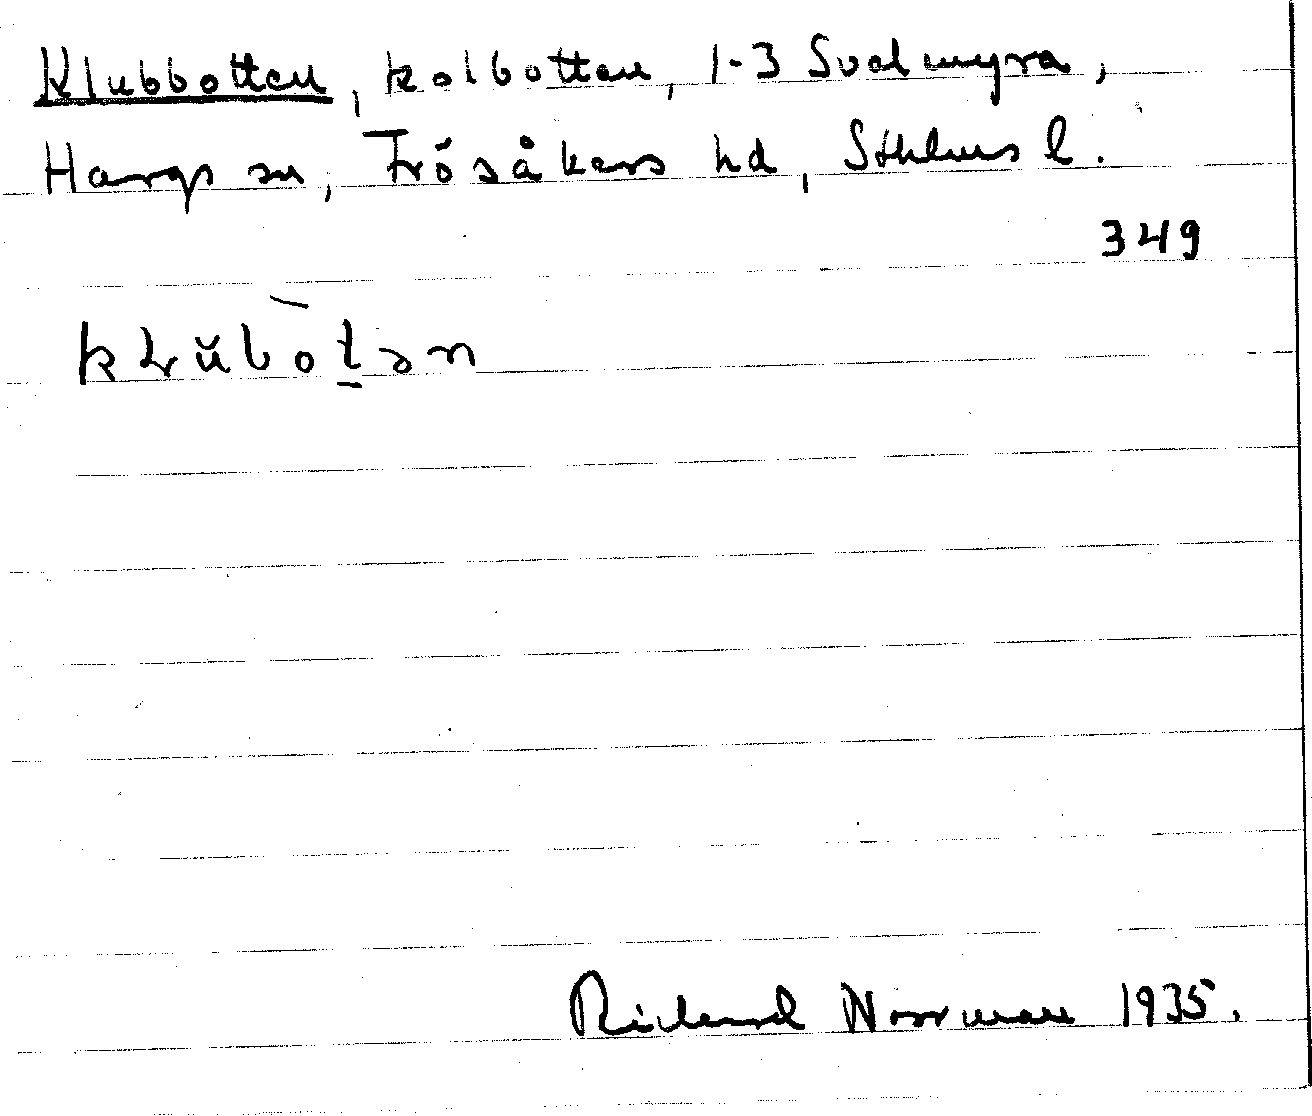 Klubbotten, kolbotten, 1-3 Svedmyra,
Hargs sn, Frösåkers hd, Sthlms l.
349
Rickard Norrman 1935.